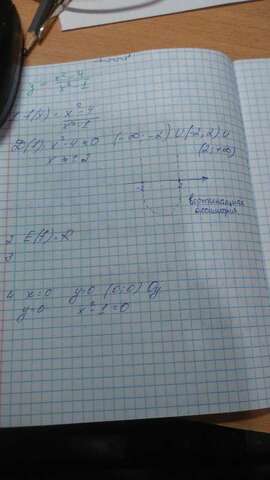 y = x² - 4 / x² - 1
f(x) = x² - 4 / x² - 1
D(f): x² - 4 ≠ 0 (-∞; -2) U (-2; 2) U
x ≠ ± 2 (2; +∞)
-2 2
вертикальная
асимптота
2. E(f) = R
3
4. x = 0 y = 0 (0; 0) Oy
y = 0 x² - 1 = 0